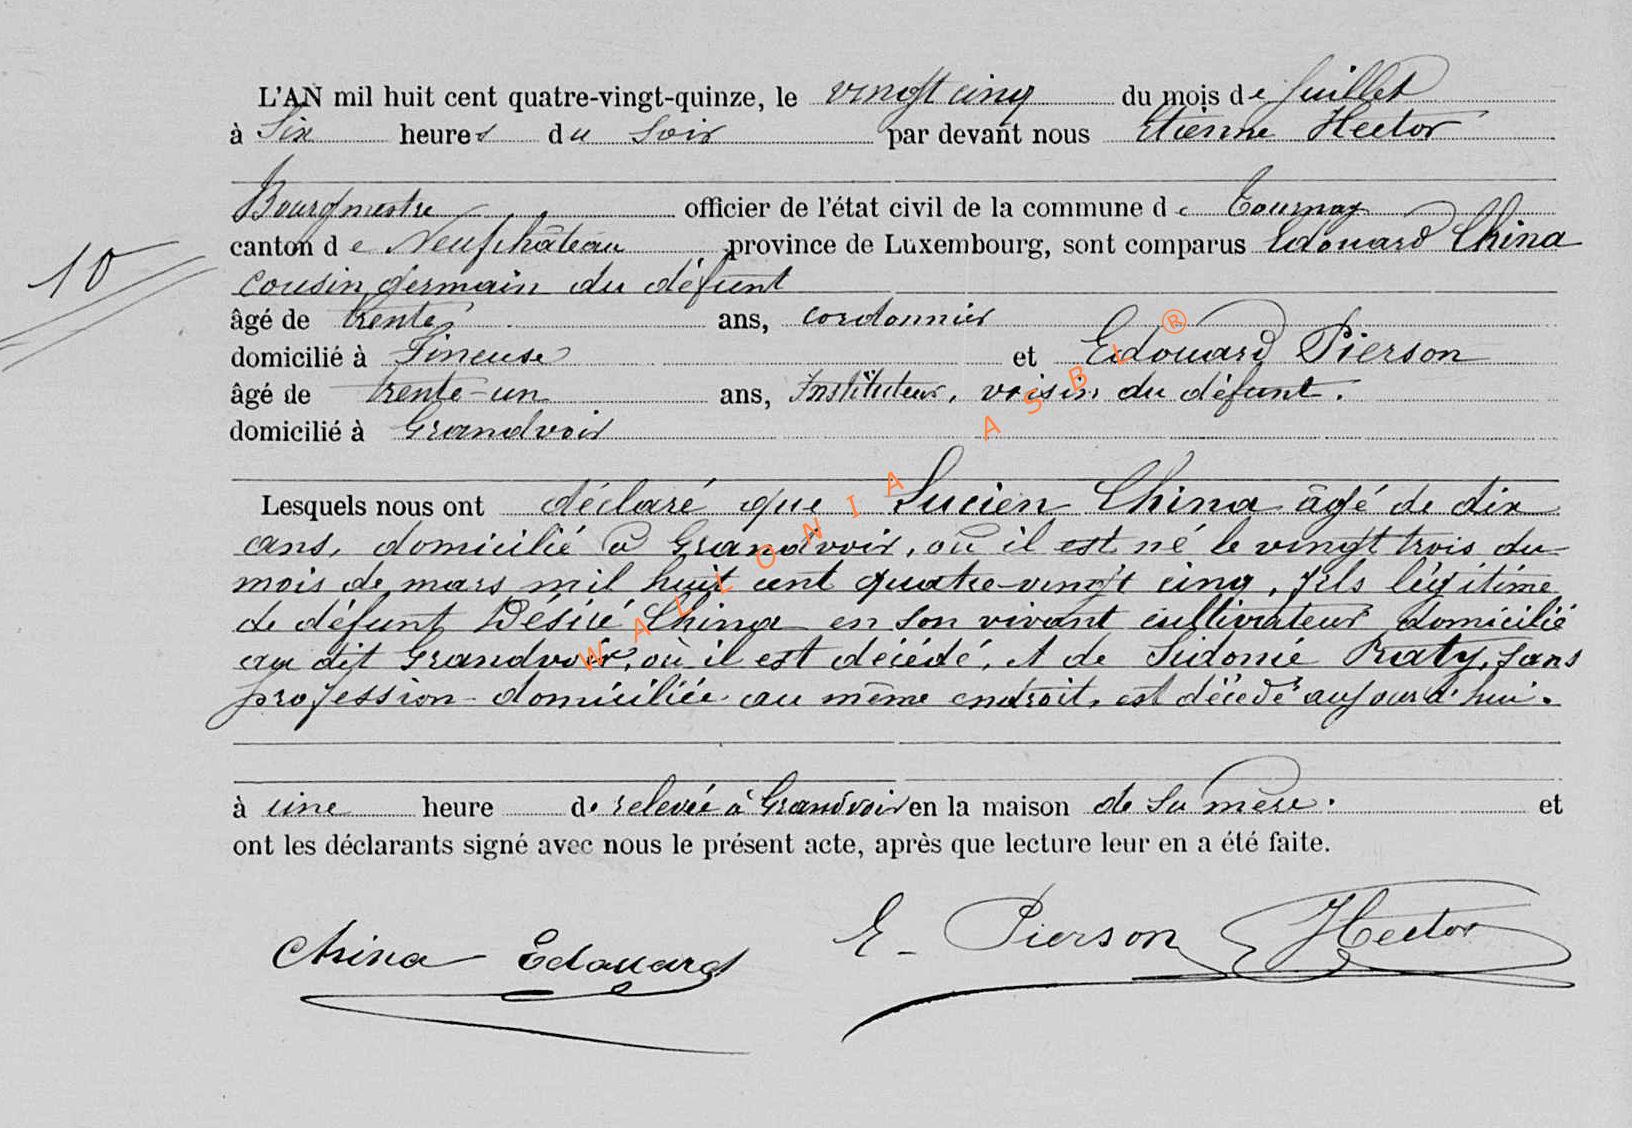 L'AN mil huit cent quatre-vingt-quinze, le vingt cinq du mois de Juillet
à Six heures du Soir par devant nous Etienne Hector
Bourgmestre officier de l'état civil de la commune de Tournay
canton de Neufchâteau province de Luxembourg, sont comparus Edouard China
10
cousin germain du défunt
âgé de trente ans, cordonnier
domicilié à Tineuse et Edouard Pierson
âgé de trente-un ans, Instituteur, voisin du défunt.
domicilié à Grandvoir
Lesquels nous ont déclaré que Lucien China âgé de dix
ans, domicilié à Grandvoir, où il est né le vingt trois du
mois de mars mil huit cent quatre-vingt cinq, fils légitime
de défunt Désiré China en son vivant cultivateur domicilié
au dit Grandvoir, où il est décédé, et de Sidonie Raty, sans
profession domiciliée au même endroit, est décédé aujourd'hui.
à une heure de relevée à Grandvoir en la maison de sa mère. et
ont les déclarants signé avec nous le présent acte, après que lecture leur en a été faite.
China Edouard E. Pierson Hector
WALLONIA ASBL ®